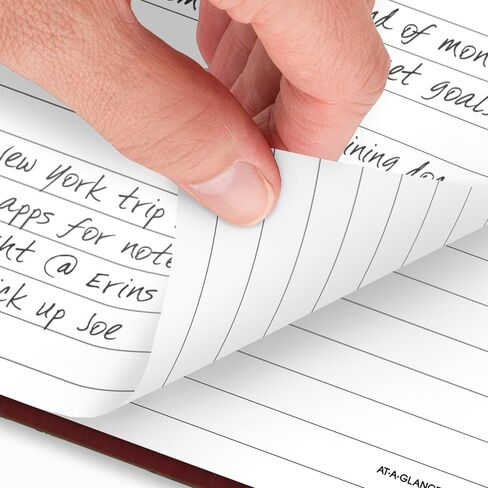 d of mon
et goals
ining doc
ew York trip
apps for note
ht @ Erins
ck up Joe
AT-A-GLANCE